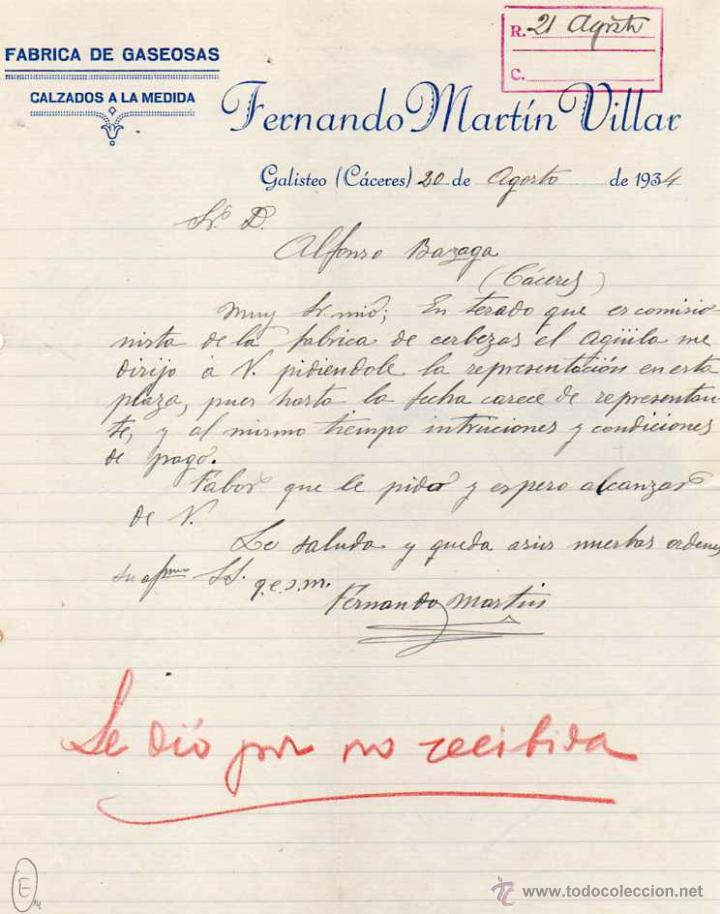 R. 21 Agosto
C.
FABRICA DE GASEOSAS
CALZADOS A LA MEDIDA
Fernando Martín Villar
Galisteo (Cáceres) 20 de Agosto de 1934
Sr. D.
Alfonso Bazaga
(Cáceres)
Muy Sr. mio; En terado que es comisio
nista de la fabrica de cerbezas el agüila me
dirijo á V. pidiendole la representación en esta
plaza, pues hasta la fecha carece de representan-
te, y al mismo tiempo intruciones y condiciones
de pago.
Fabor que le pido y espero alcanzar
de V.
Le saluda y queda asus muchas ordenes
su afmo SS. q.e.s.m.
Fernando Martin
Se dió por no recibida
E
www.todocoleccion.net